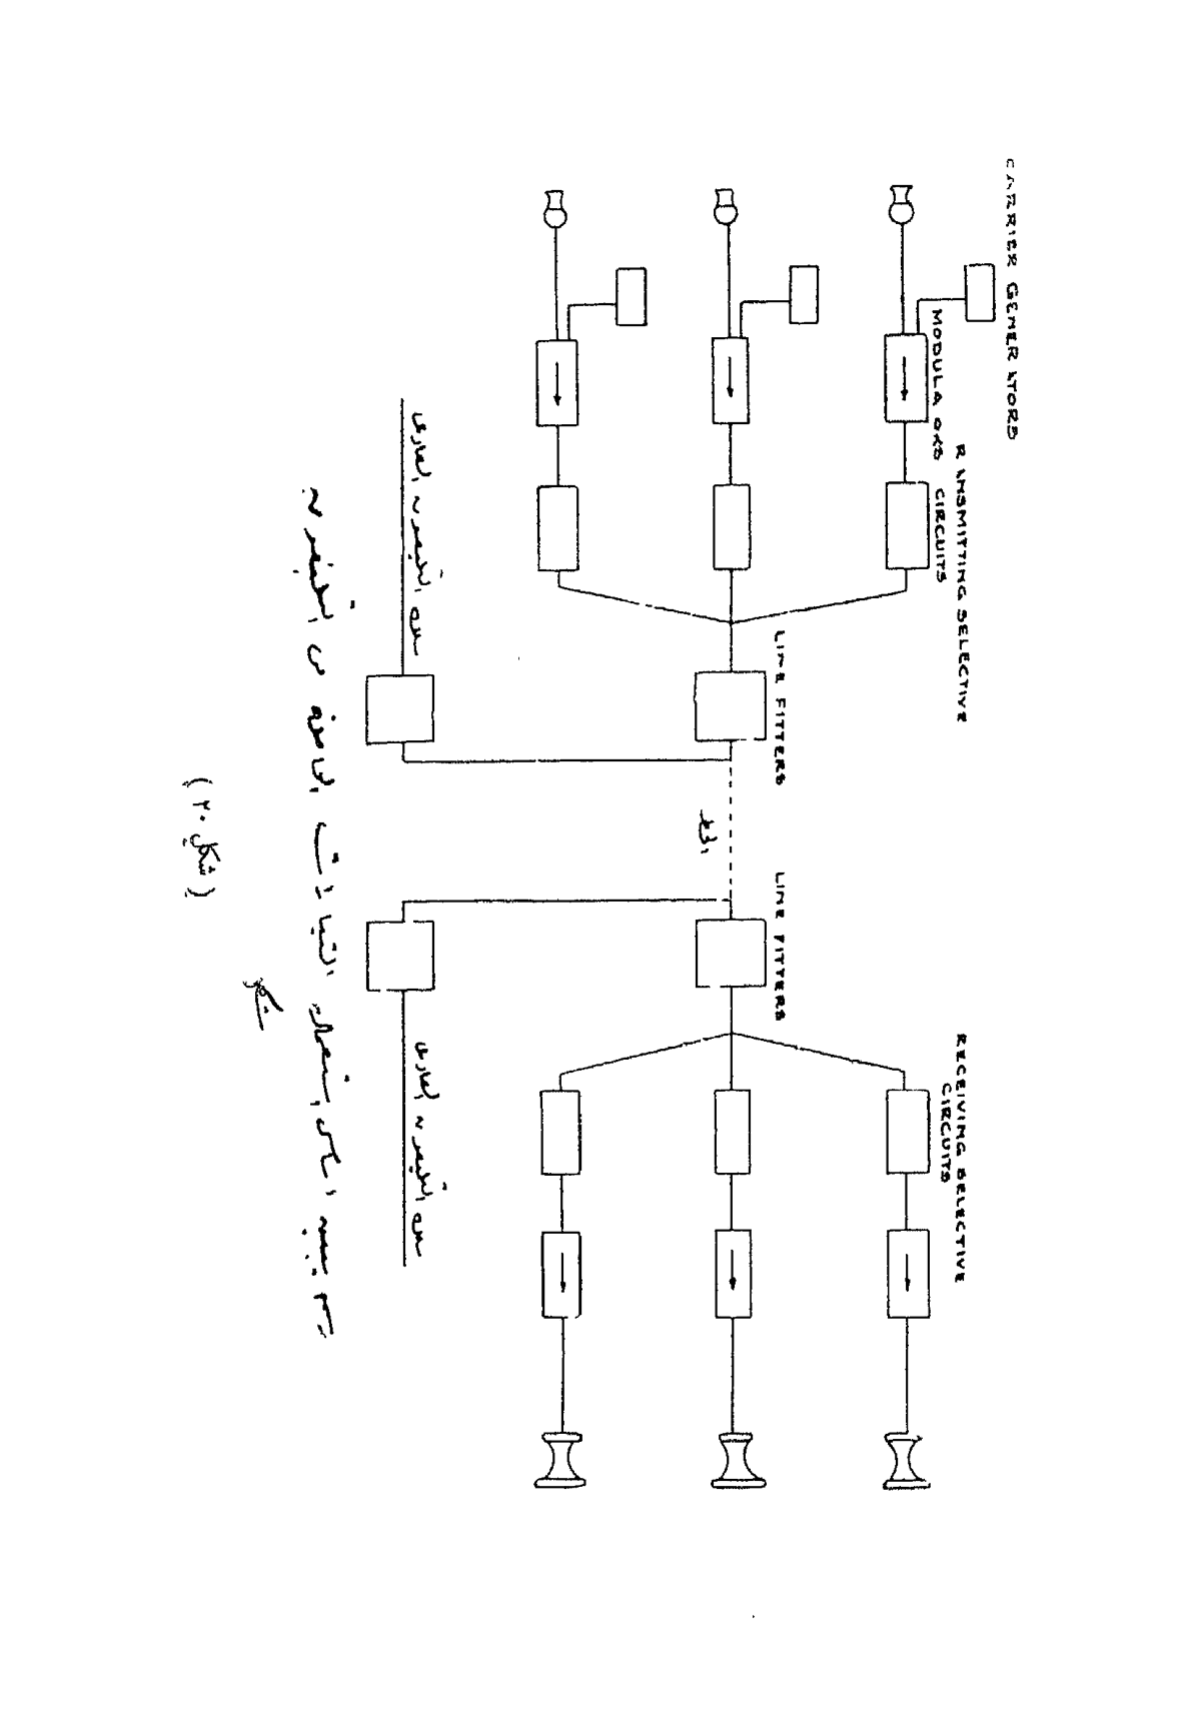 CARRIER GENER ATORS
MODULA ORS
R ANSMITTING SELECTIVE
CIRCUITS
LINE FITTERS
LINE FITTERS
RECEIVING SELECTIVE
CIRCUITS
الخط
التليفون العادى
التليفون العادى
رسم يبين أساس إستعمال التيارات الحاملة فى التليفون
(شكل ٢٠)